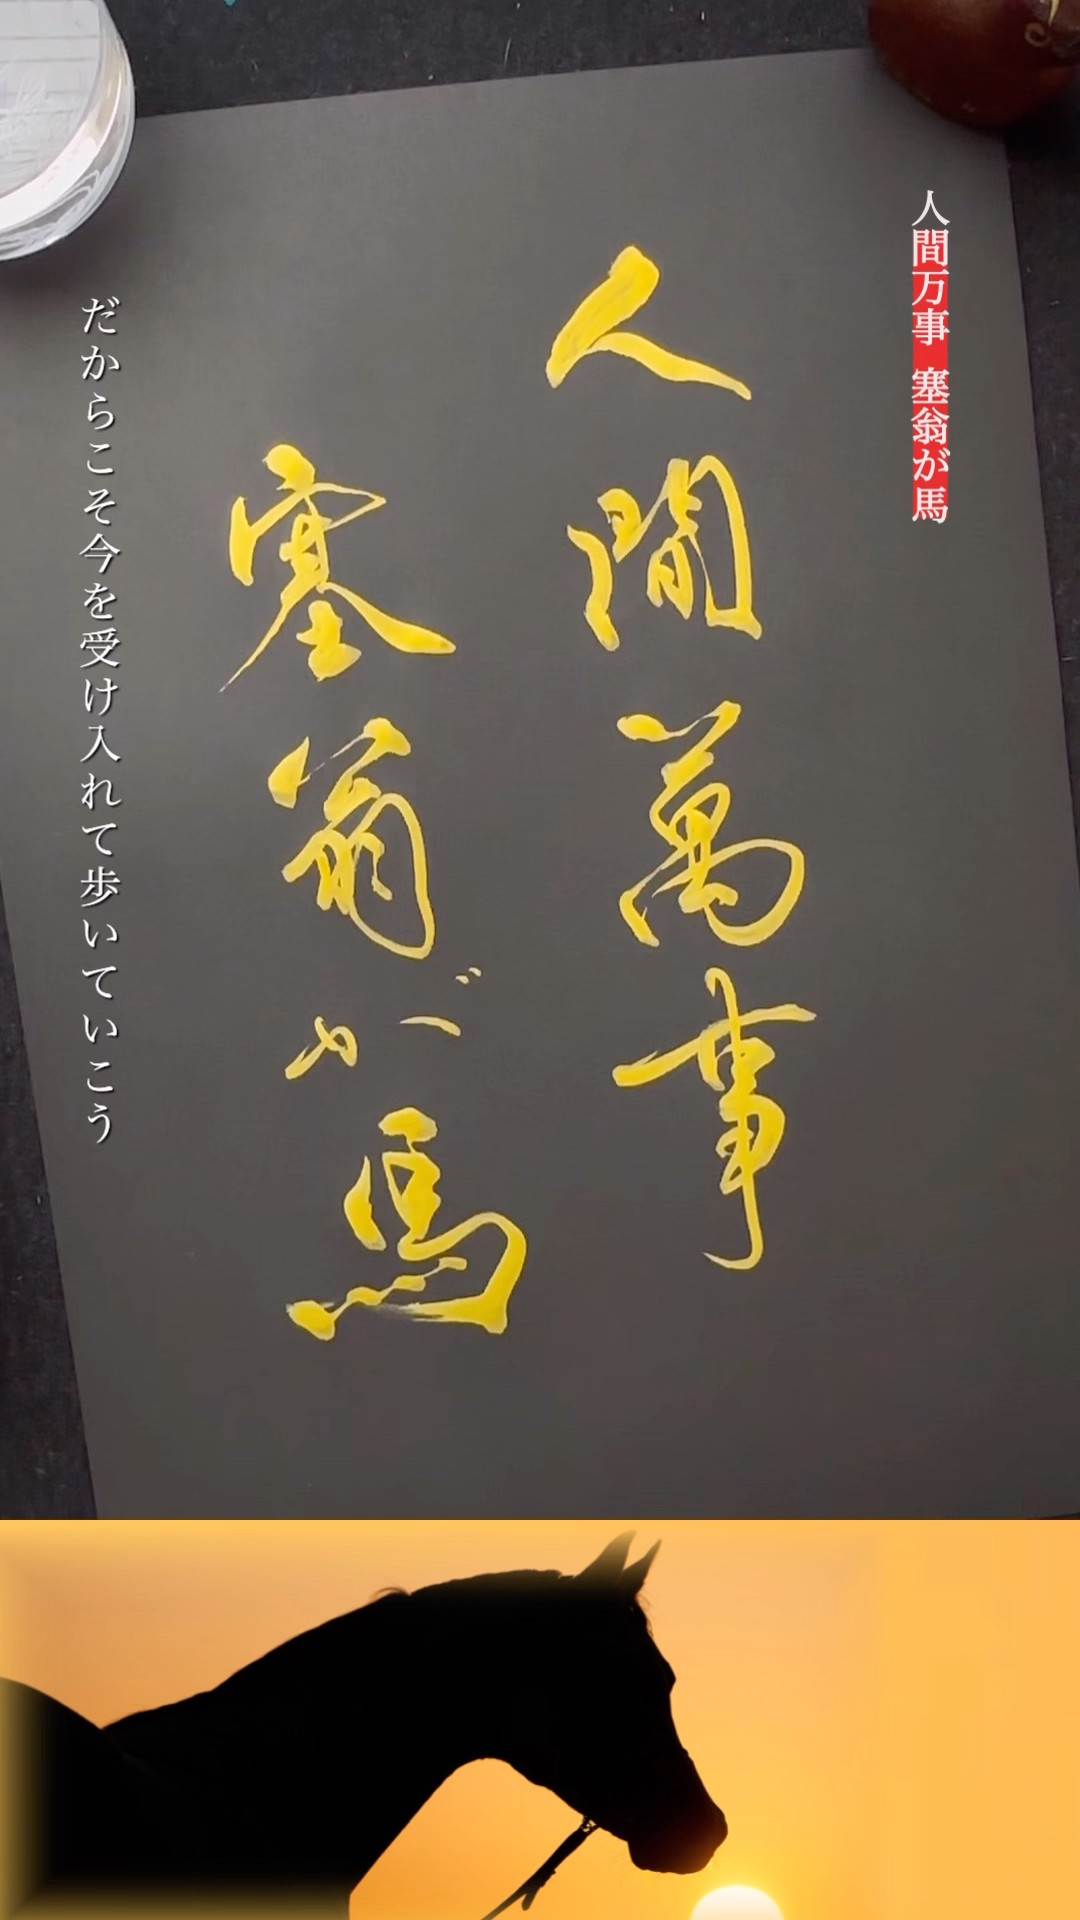 人間万事 塞翁が馬
人間萬事
塞翁が馬
だからこそ今を受け入れて歩いていこう